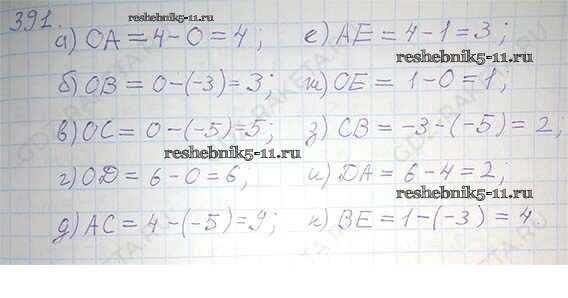 391.
reshebnik5-11.ru
а) OA = 4 – 0 = 4; е) AE = 4 – 1 = 3;
б) OB = 0 – (–3) = 3; ж) OE = 1 – 0 = 1;
reshebnik5-11.ru
в) OC = 0 – (–5) = 5; з) CB = –3 – (–5) = 2;
reshebnik5-11.ru
г) OD = 6 – 0 = 6; и) DA = 6 – 4 = 2;
д) AC = 4 – (–5) = 9; к) BE = 1 – (–3) = 4
reshebnik5-11.ru